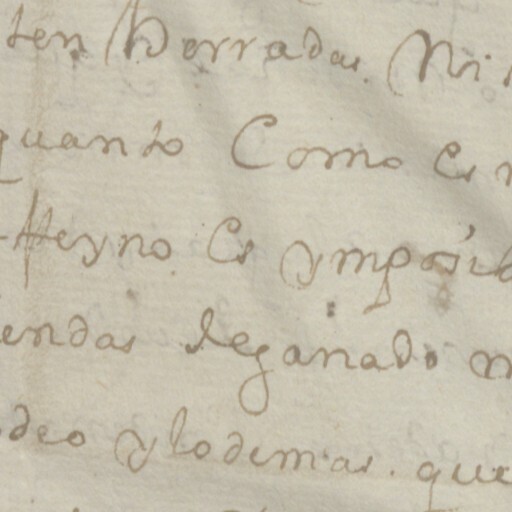 ten Herradas. Ni
quanto Como es
Reyno Es ymposib
endas de ganado
deo y lo demas. que